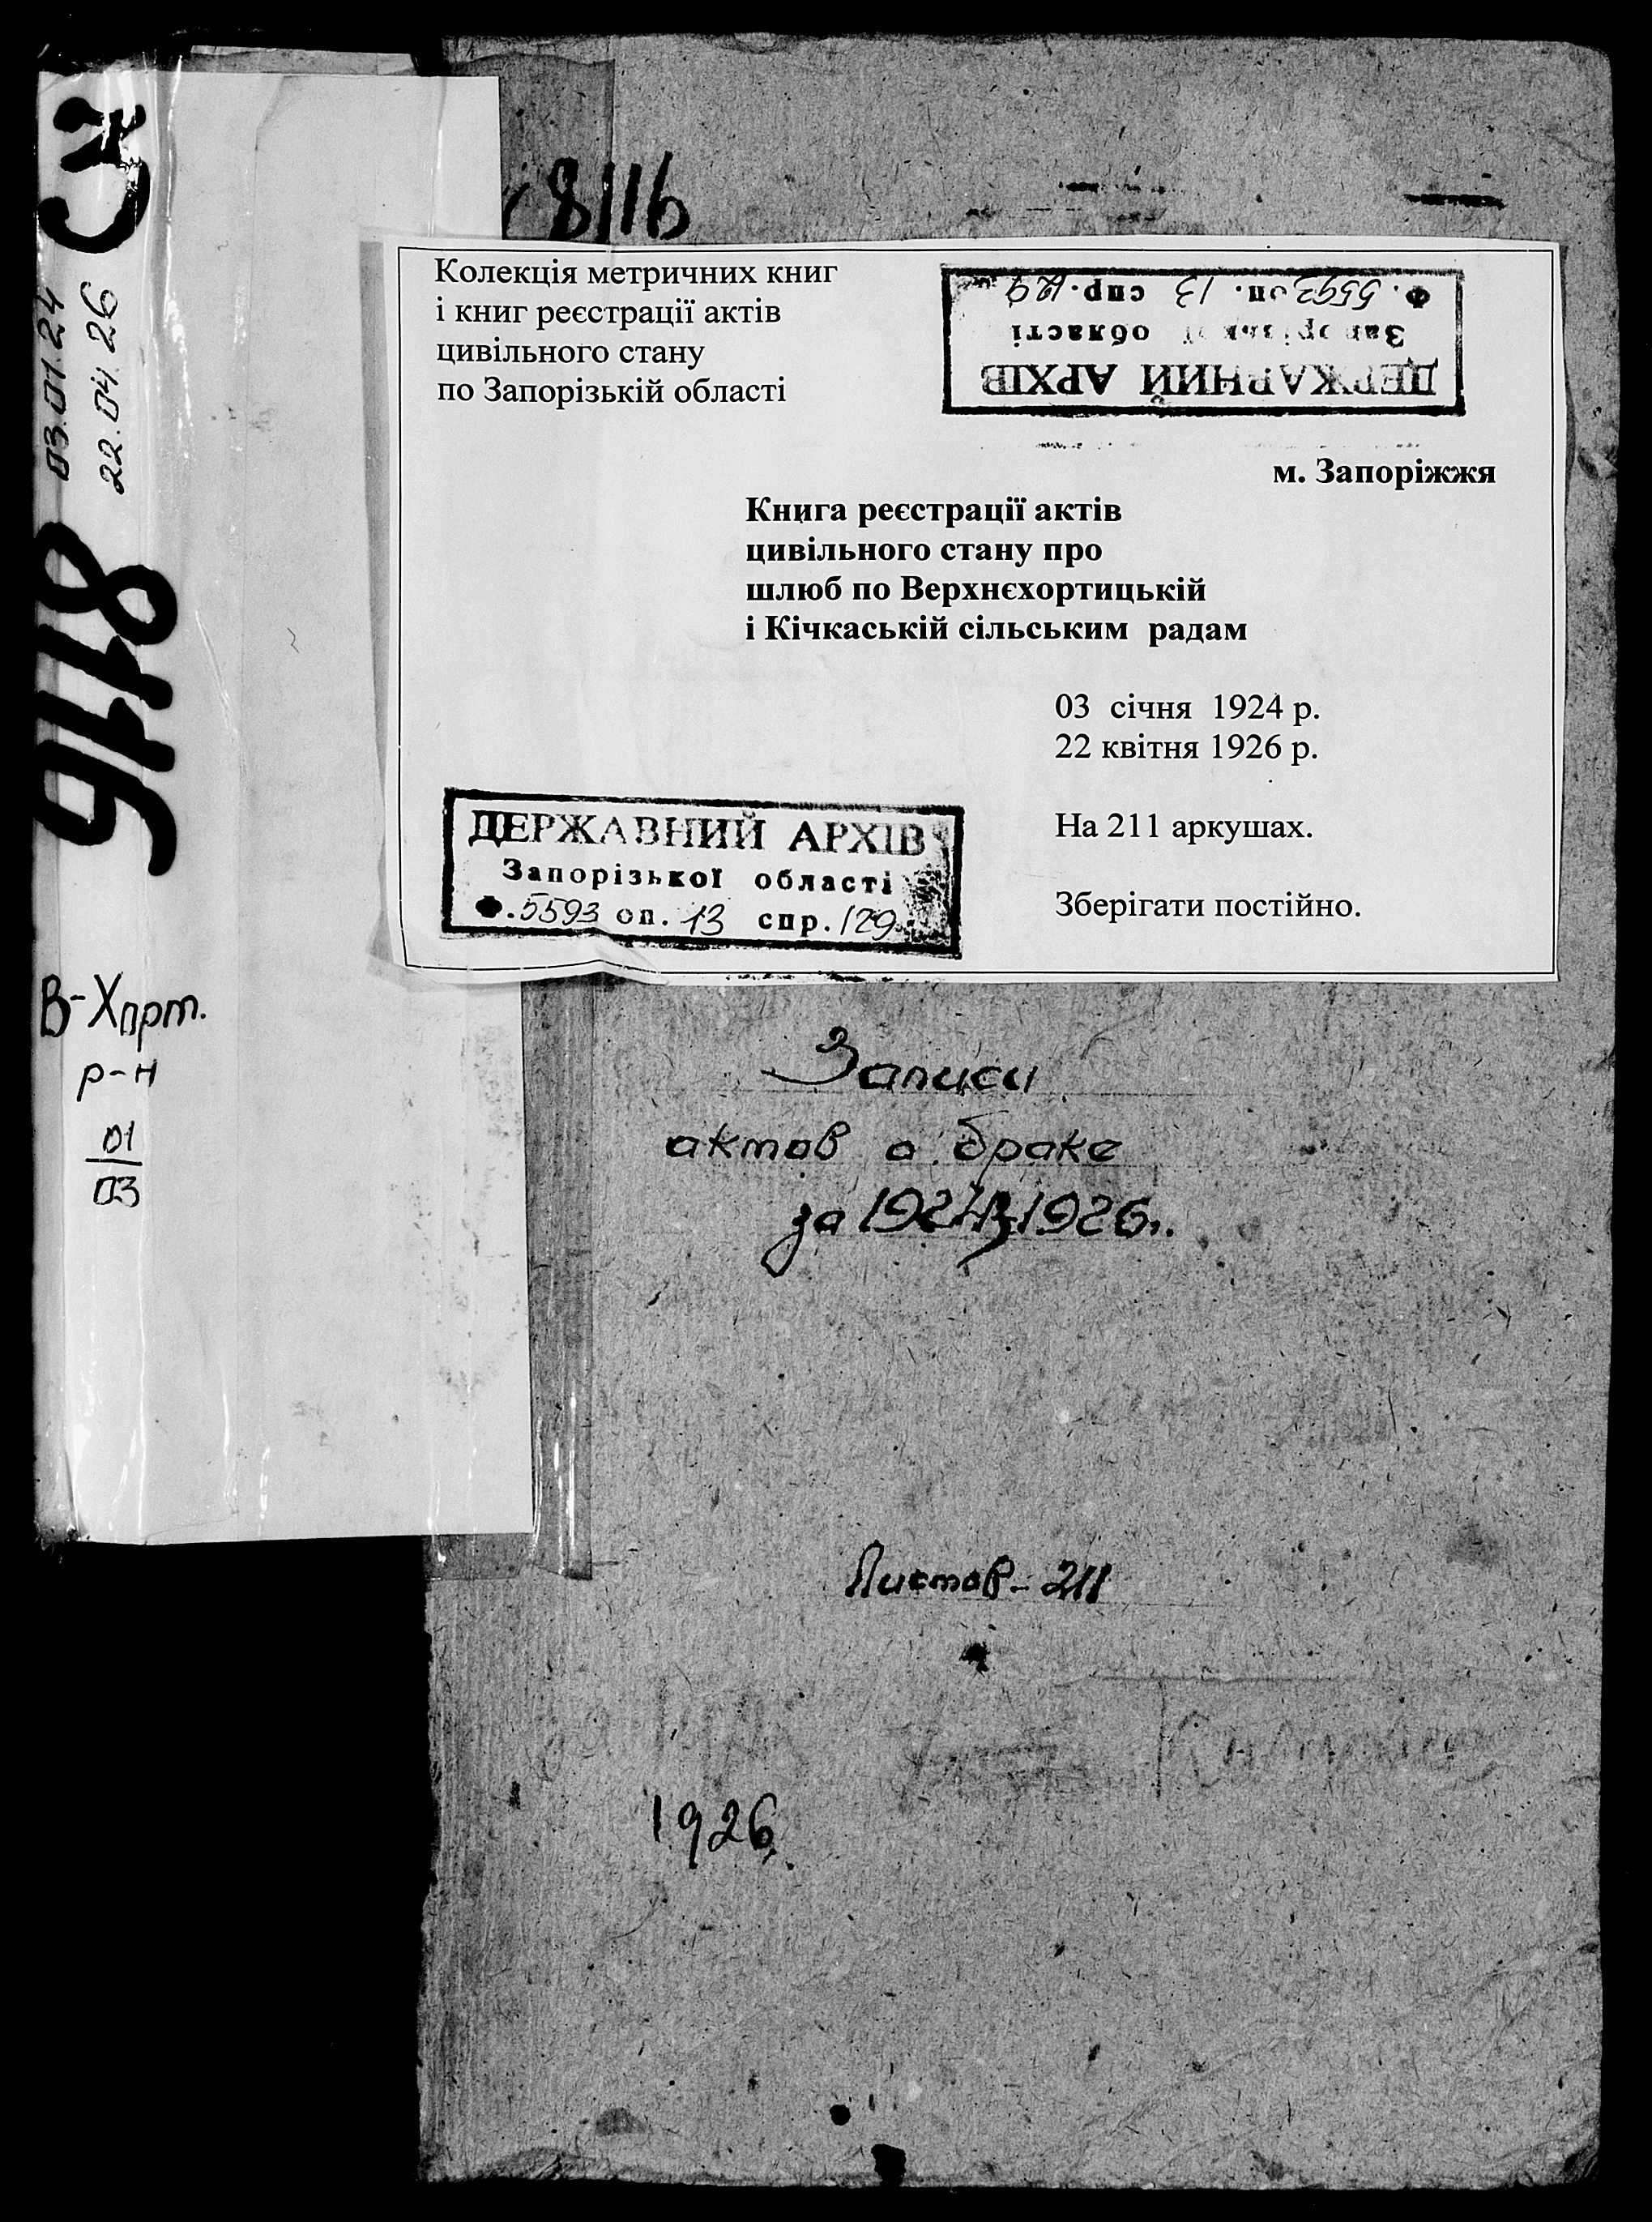 СЗ
03.01.24
22.04.26
8116
В-Хорт.
р-н
01
03
8116
Колекція метричних книг
і книг реєстрації актів
цивільного стану
по Запорізькій області
ДЕРЖАВНИЙ АРХІВ
Запорізької області
Ф. 5593 оп. 13 спр. 129
м. Запоріжжя
Книга реєстрації актів
цивільного стану про
шлюб по Верхнєхортицькій
і Кічкаській сільським радам
03 січня 1924 р.
22 квітня 1926 р.
На 211 аркушах.
Зберігати постійно.
ДЕРЖАВНИЙ АРХІВ
Запорізької області
Ф. 5593 оп. 13 спр. 129
Записи
актов о браке
за 1924 1926г.
Листов - 211
1926